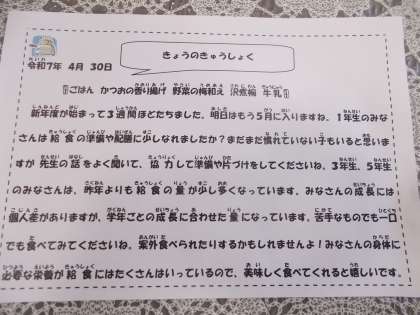 きょうのきゅうしょく
令和7年 4月 30日
ごはん かつおの香り揚げ 野菜の梅和え 沢煮椀 牛乳
新年度が始まって3週間ほどたちました。明日はもう5月に入りますね。1年生のみな
さんは給食の準備や配膳に少しなれましたか?まだまだ慣れていない子もいると思いま
すが 先生の話をよく聞いて、協力して準備や片づけをしてくださいね。3年生、5年生
のみなさんは、昨年よりも給食の量が少し多くなっています。みなさんの成長には
個人差がありますが、学年ごとの成長に合わせた量になっています。苦手なものでも一口
でも食べてみてくださいね。案外食べられたりするかもしれませんよ!みなさんの身体に
必要な栄養が給食にはたくさんはいっているので、美味しく食べてくれると嬉しいです。